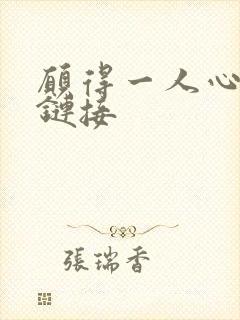 願得一人心
鏈接
張瑞香